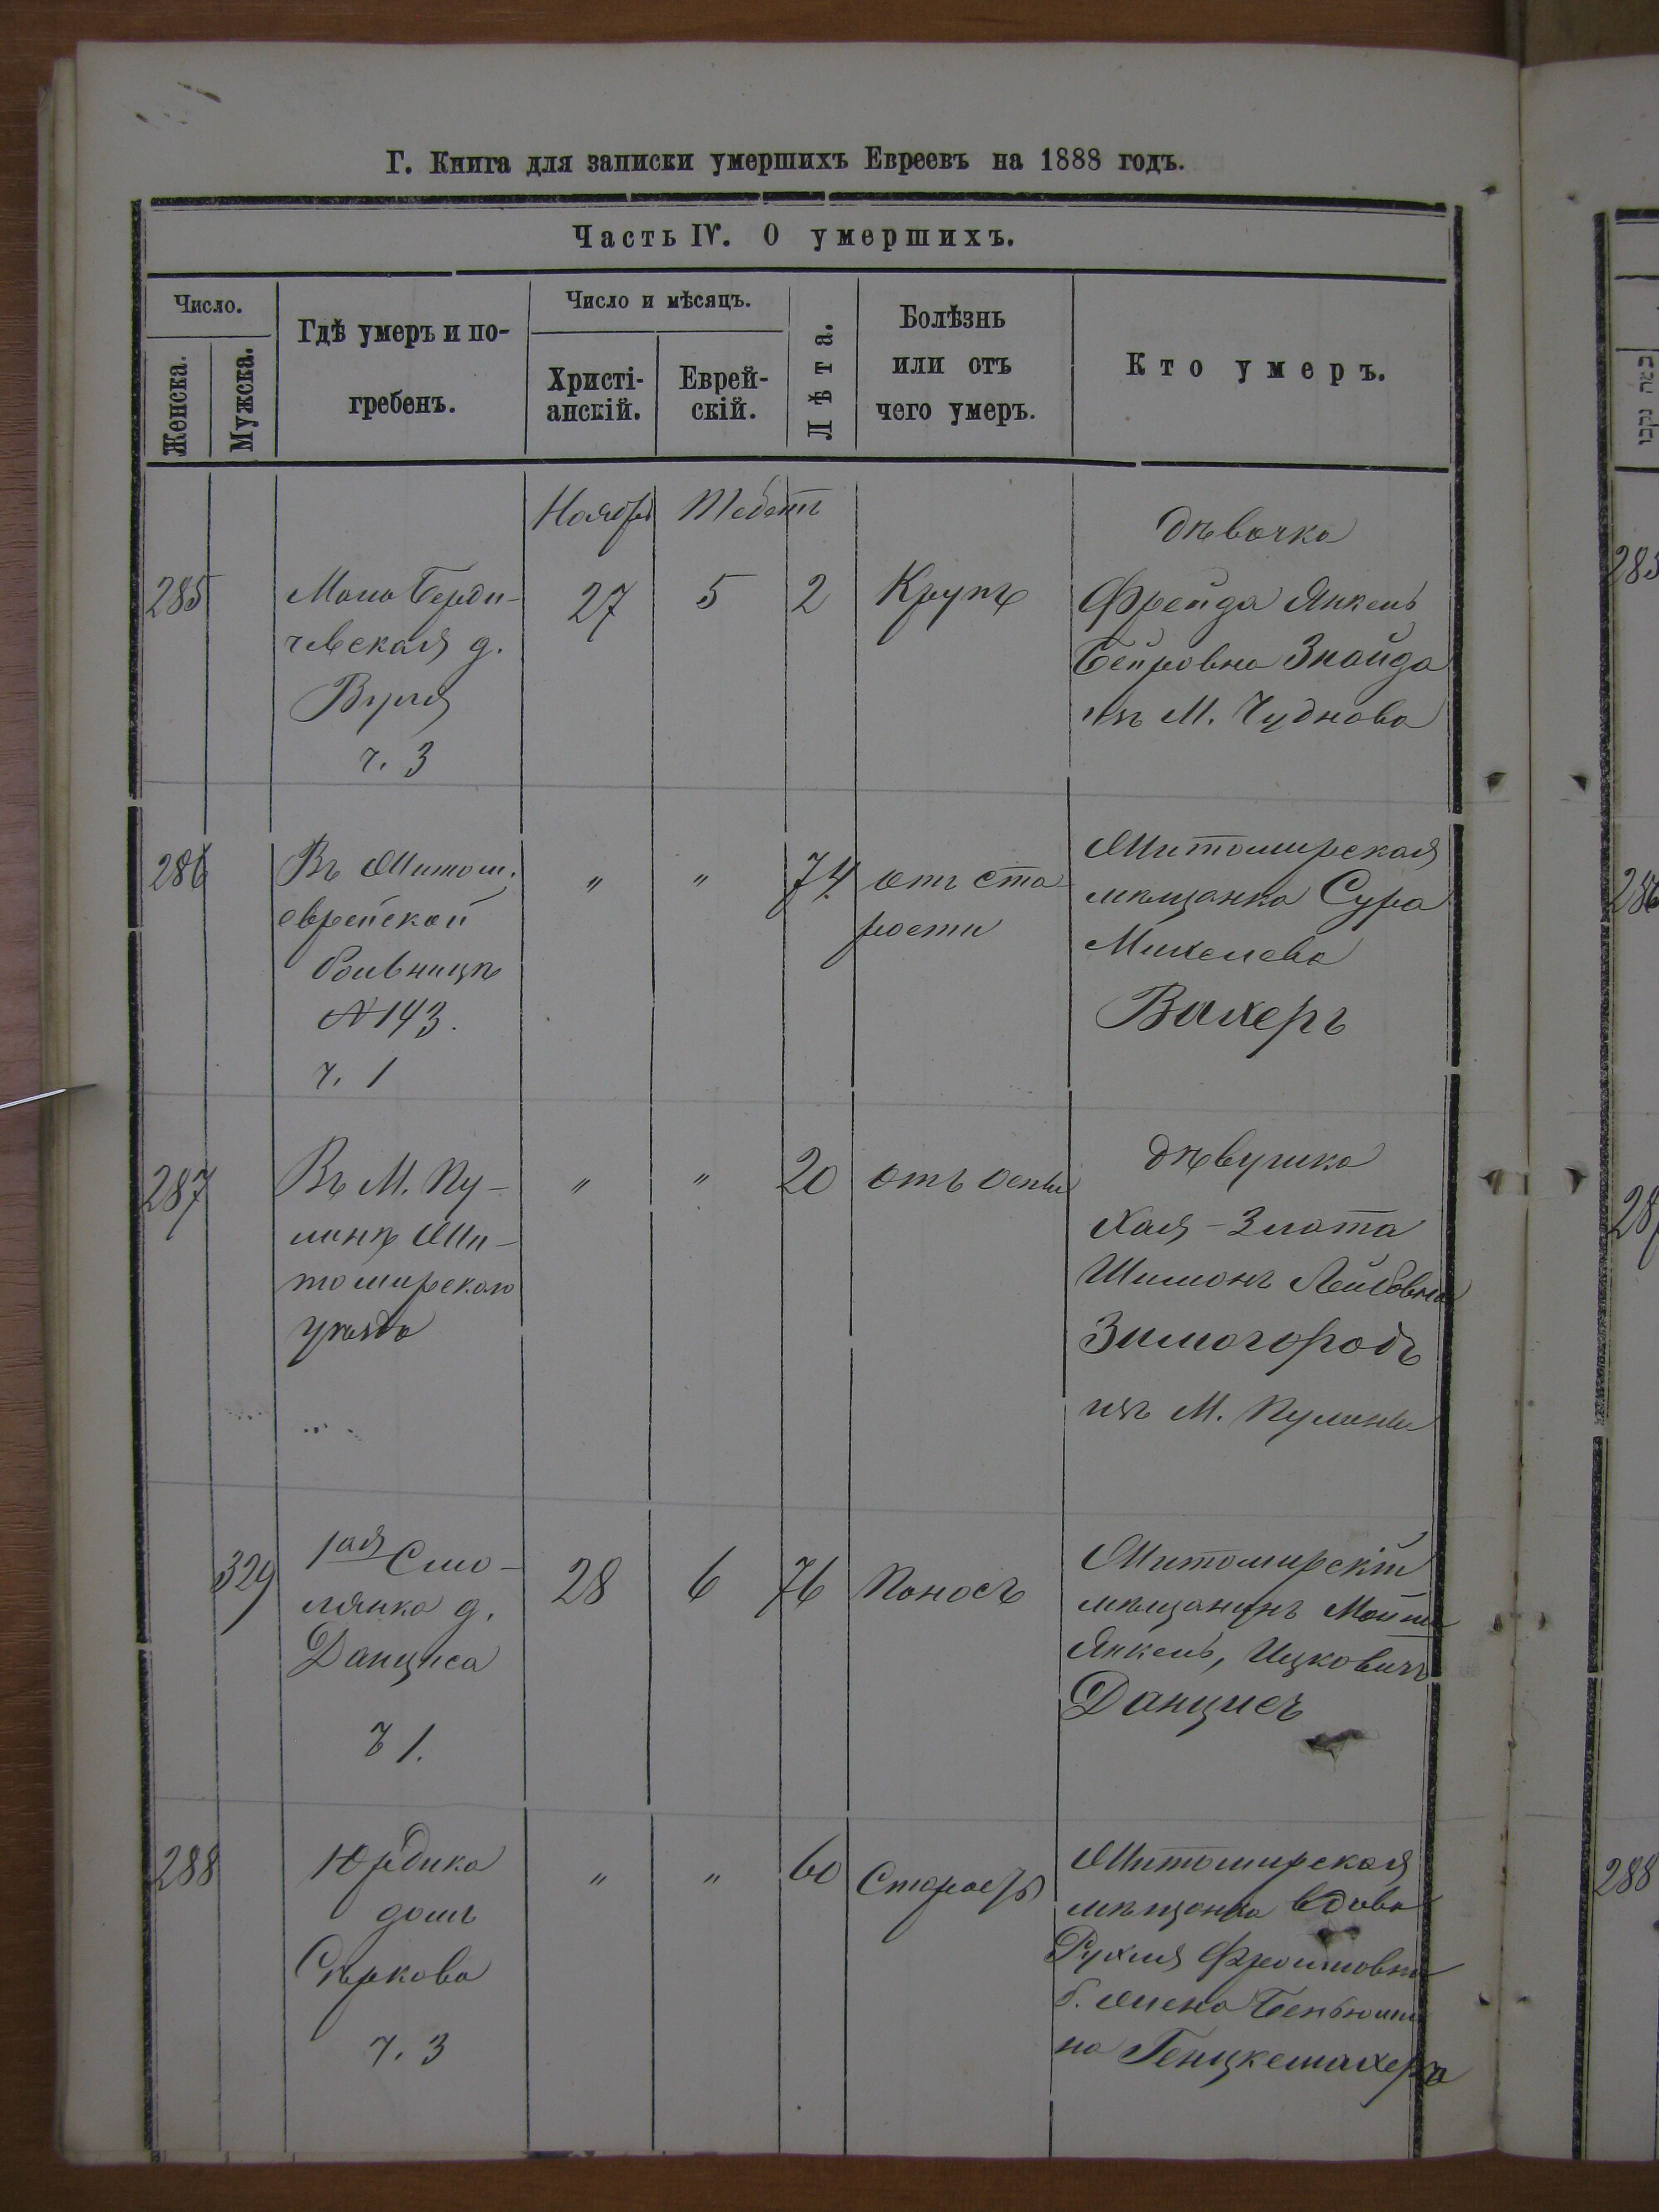 Г. Книга для записки умершихъ Евреевъ на 1888 годъ.
Часть IV. О умершихъ.
Число.
Женска.
Мужска.
Гдѣ умеръ и по-
гребенъ.
Число и мѣсяцъ.
Христі-
анскій.
Еврей-
скій.
Лѣта.
Болѣзнь
или отъ
чего умеръ.
Кто умеръ.
Ноябрь Тебетъ
285
Мало Берди-
чевская д.
ч. 3
27
5
2
Крупъ
дѣвочка
Фрейда Янкель
Беировна Знайда
изъ М. Чуднова
286
Въ Житом.
еврейской
больницѣ
№ 143.
ч. 1
"
"
74
отъ ста
рости
Житомирская
мѣщанка Сура
Михелева
Вахеръ
287
Въ М. Ку-
линѣ Жи-
томирского
уѣзда
"
"
20
отъ оспы
дѣвушка
Хая-Злота
Шимонъ Лейбовна
Зимогородъ
изъ М. Кулины
329
1ая Смо-
лянка д.
Данциса
ч 1.
28
6
76
Поносъ
Житомирскій
мѣщанинъ
Янкель, Ицковичъ
Данцисъ
288
Юрдика
домъ
ч. 3
"
"
60
Старость
Житомирская
мѣщанка вдова
Рухля Фроимовна
б. жена Беньюми
на Генцкемахера
285
286
28
288